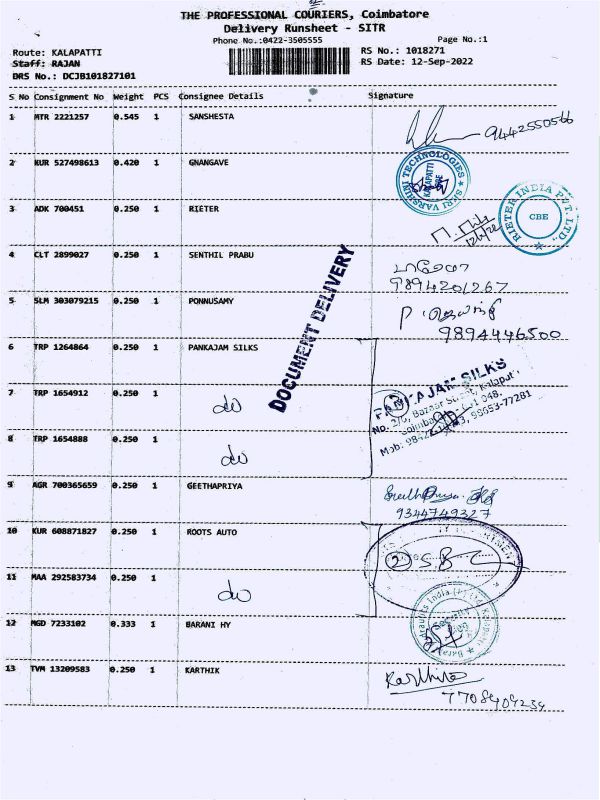 THE PROFESSIONAL COURIERS, Coimbatore
Delivery Runsheet - SITR
Phone No.:0422-3505555
Page No.:1
Route: KALAPATTI
RS No.: 1018271
Staff: RAJAN
RS Date: 12-Sep-2022
DRS No.: DCJB101827101
S No Consignment No Weight PCS Consignee Details Signature
1 MTR 2221257 0.545 1 SANSHESTA 9442550566
2 KUR 527498613 0.420 1 GNANGAVE
SHRI VARSHINI TECHNOLOGIES
KALAPATTI
3 ADK 700451 0.250 1 RIETER
RIETER INDIA PVT. LTD.,
CBE
4 CLT 2899027 0.250 1 SENTHIL PRABU
9894201267
5 SLM 303079215 0.250 1 PONNUSAMY
9894446500
DOCUMENT DELIVERY
6 TRP 1264864 0.250 1 PANKAJAM SILKS
7 TRP 1654912 0.250 1 do
PANKAJAM SILKS
8 TRP 1654888 0.250 1 do
9 AGR 700365659 0.250 1 GEETHAPRIYA
9344749327
10 KUR 608871827 0.250 1 ROOTS AUTO
2
11 MAA 292583734 0.250 1 do
12 MGD 7233102 0.333 1 BARANI HY
13 TVM 13209583 0.250 1 KARTHIK
7708409234